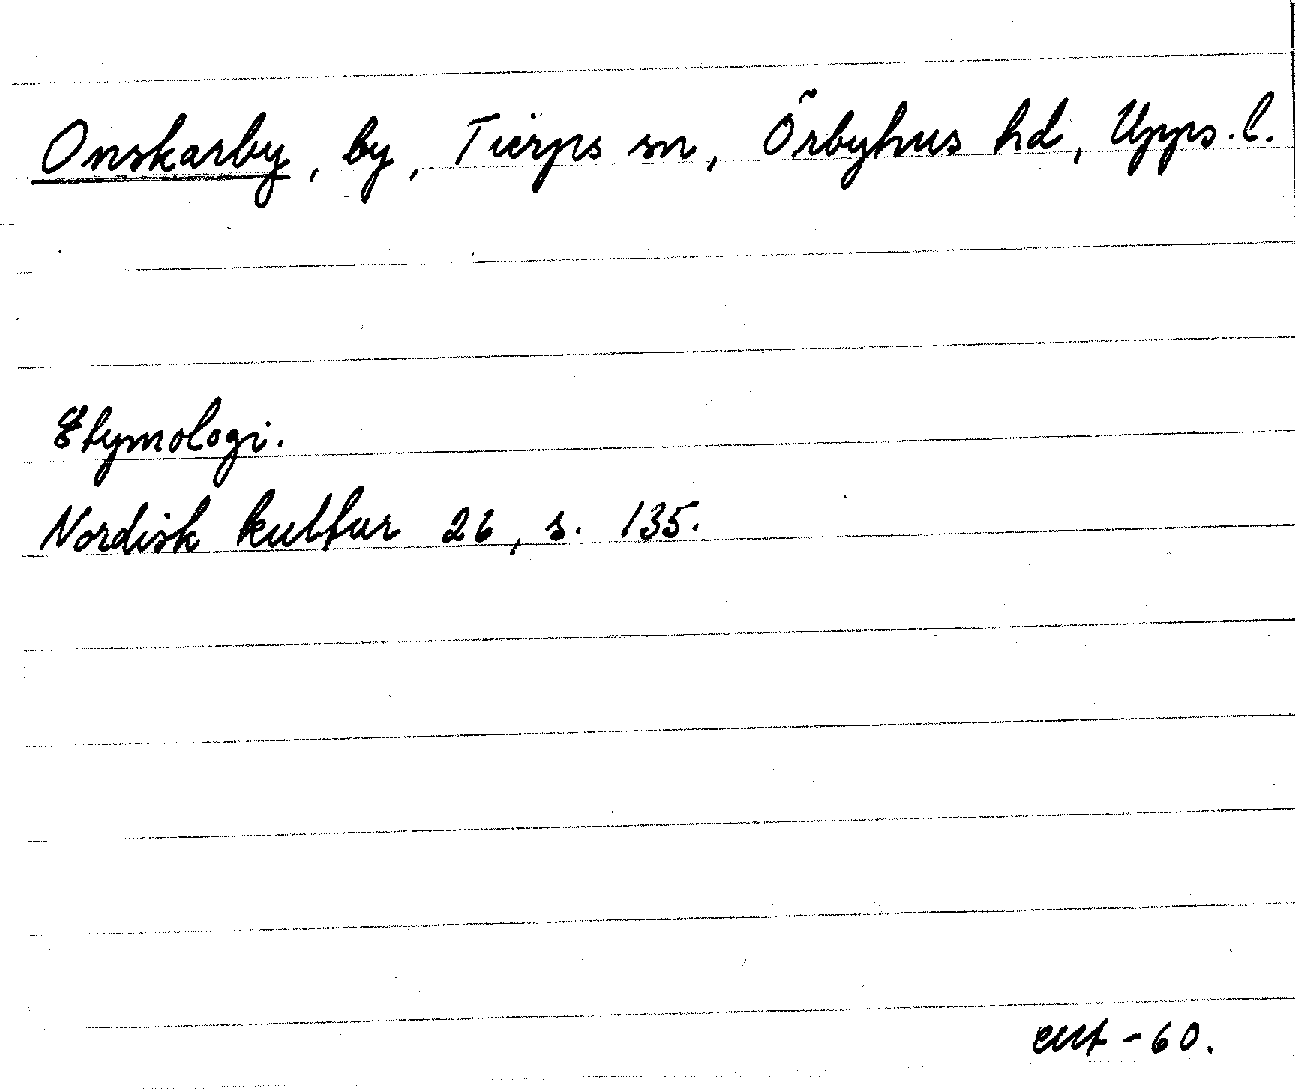 Onskarby, by, Tierps sn, Örbyhus hd, Upps. l.
Etymologi.
Nordisk kultur 26, s. 135.
-60.